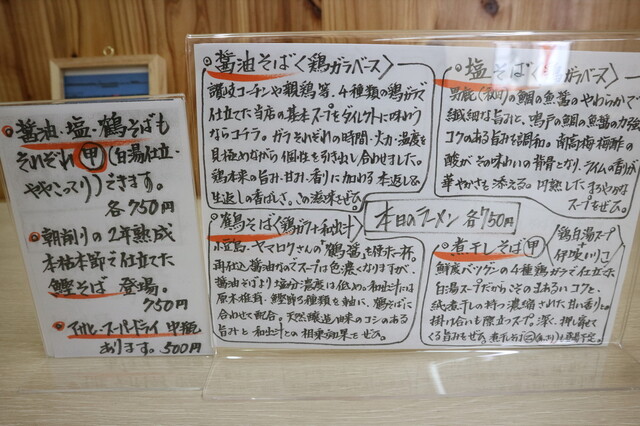 醤油・塩・鶴そばも
それぞれ甲(白湯仕立・
ややこってり)できます。
各750円
朝削りの2年熟成
本枯本節で仕立てた
鰹そば登場。
750円
アサヒ・スーパードライ 中瓶
あります。500円
醤油そば〈鶏ガラベース〉
讃岐コーチンや親鶏等、4種類の鶏ガラで
仕立てた当店の基本スープをダイレクトに味わう
ならコチラ。ガラそれぞれの時間・火力・温度を
見極めながら個性を引き出し合わせました。
鶏本来の旨み・甘み・香りに加わる本返し&
生返しの香ばしさ。この滋味をぜひ。
塩そば〈鶏ガラベース〉
男鹿(秋田)の鯛の魚醤のやわらかで
繊細な旨みと、鳴戸の鯛の魚醤の力強く
コクのある旨みを調和。南高梅梅酢の
酸がその味わいの背骨となり、ライムの香りが
華やかさを添える。円熟したまろやかな
スープをぜひ。
本日のラーメン 各750円
鶴そば〈鶏ガラ+和出汁〉
小豆島・ヤマロクさんの「鶴醤」を使た一杯。
再仕込醤油なのでスープは色濃くなりますが、
醤油そばより塩分濃度は低め。和出汁には
原木椎茸、鰹節3種類を軸に、鶴そばに
合わせて配合。天然醸造由来のコシのある
旨みと和出汁との相乗効果をぜひ。
煮干しそば甲
鶏白湯スープ
+
伊吹いりこ
鮮度バツグンの4種鶏ガラで仕立た
白湯スープだからこそのまあるいコクと、
低煮干しの持つ濃縮された甘い香りと
掛け合いも際立つスープ。深く、押し寄せて
くる旨みをぜひ。